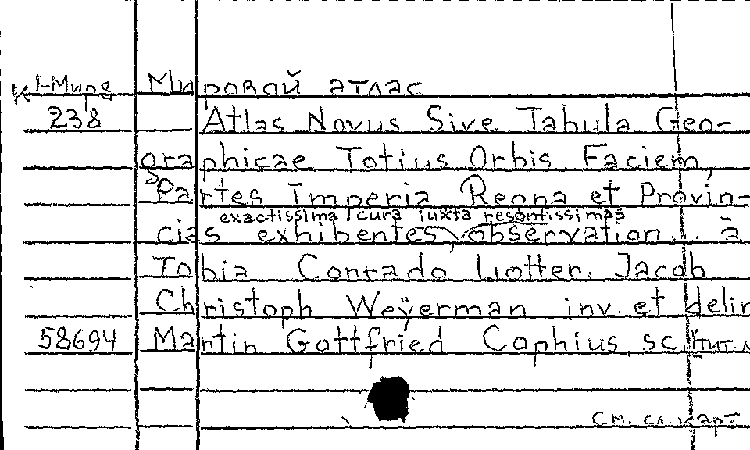 К 1-Мир
Мировой атлас
238
Atlas Novus Sive Tabula Geo-
graphicae Totius Orbis Faciem,
Partes Imperia Regna et Provin-
exactissima cura iuxta
cias exhibentes, observation. à
Tobia Conrado Lotter. Jacob
Christoph Weÿerman inv. et delin
58694
Martin Gottfried Cophius sc.
см. сл. карт